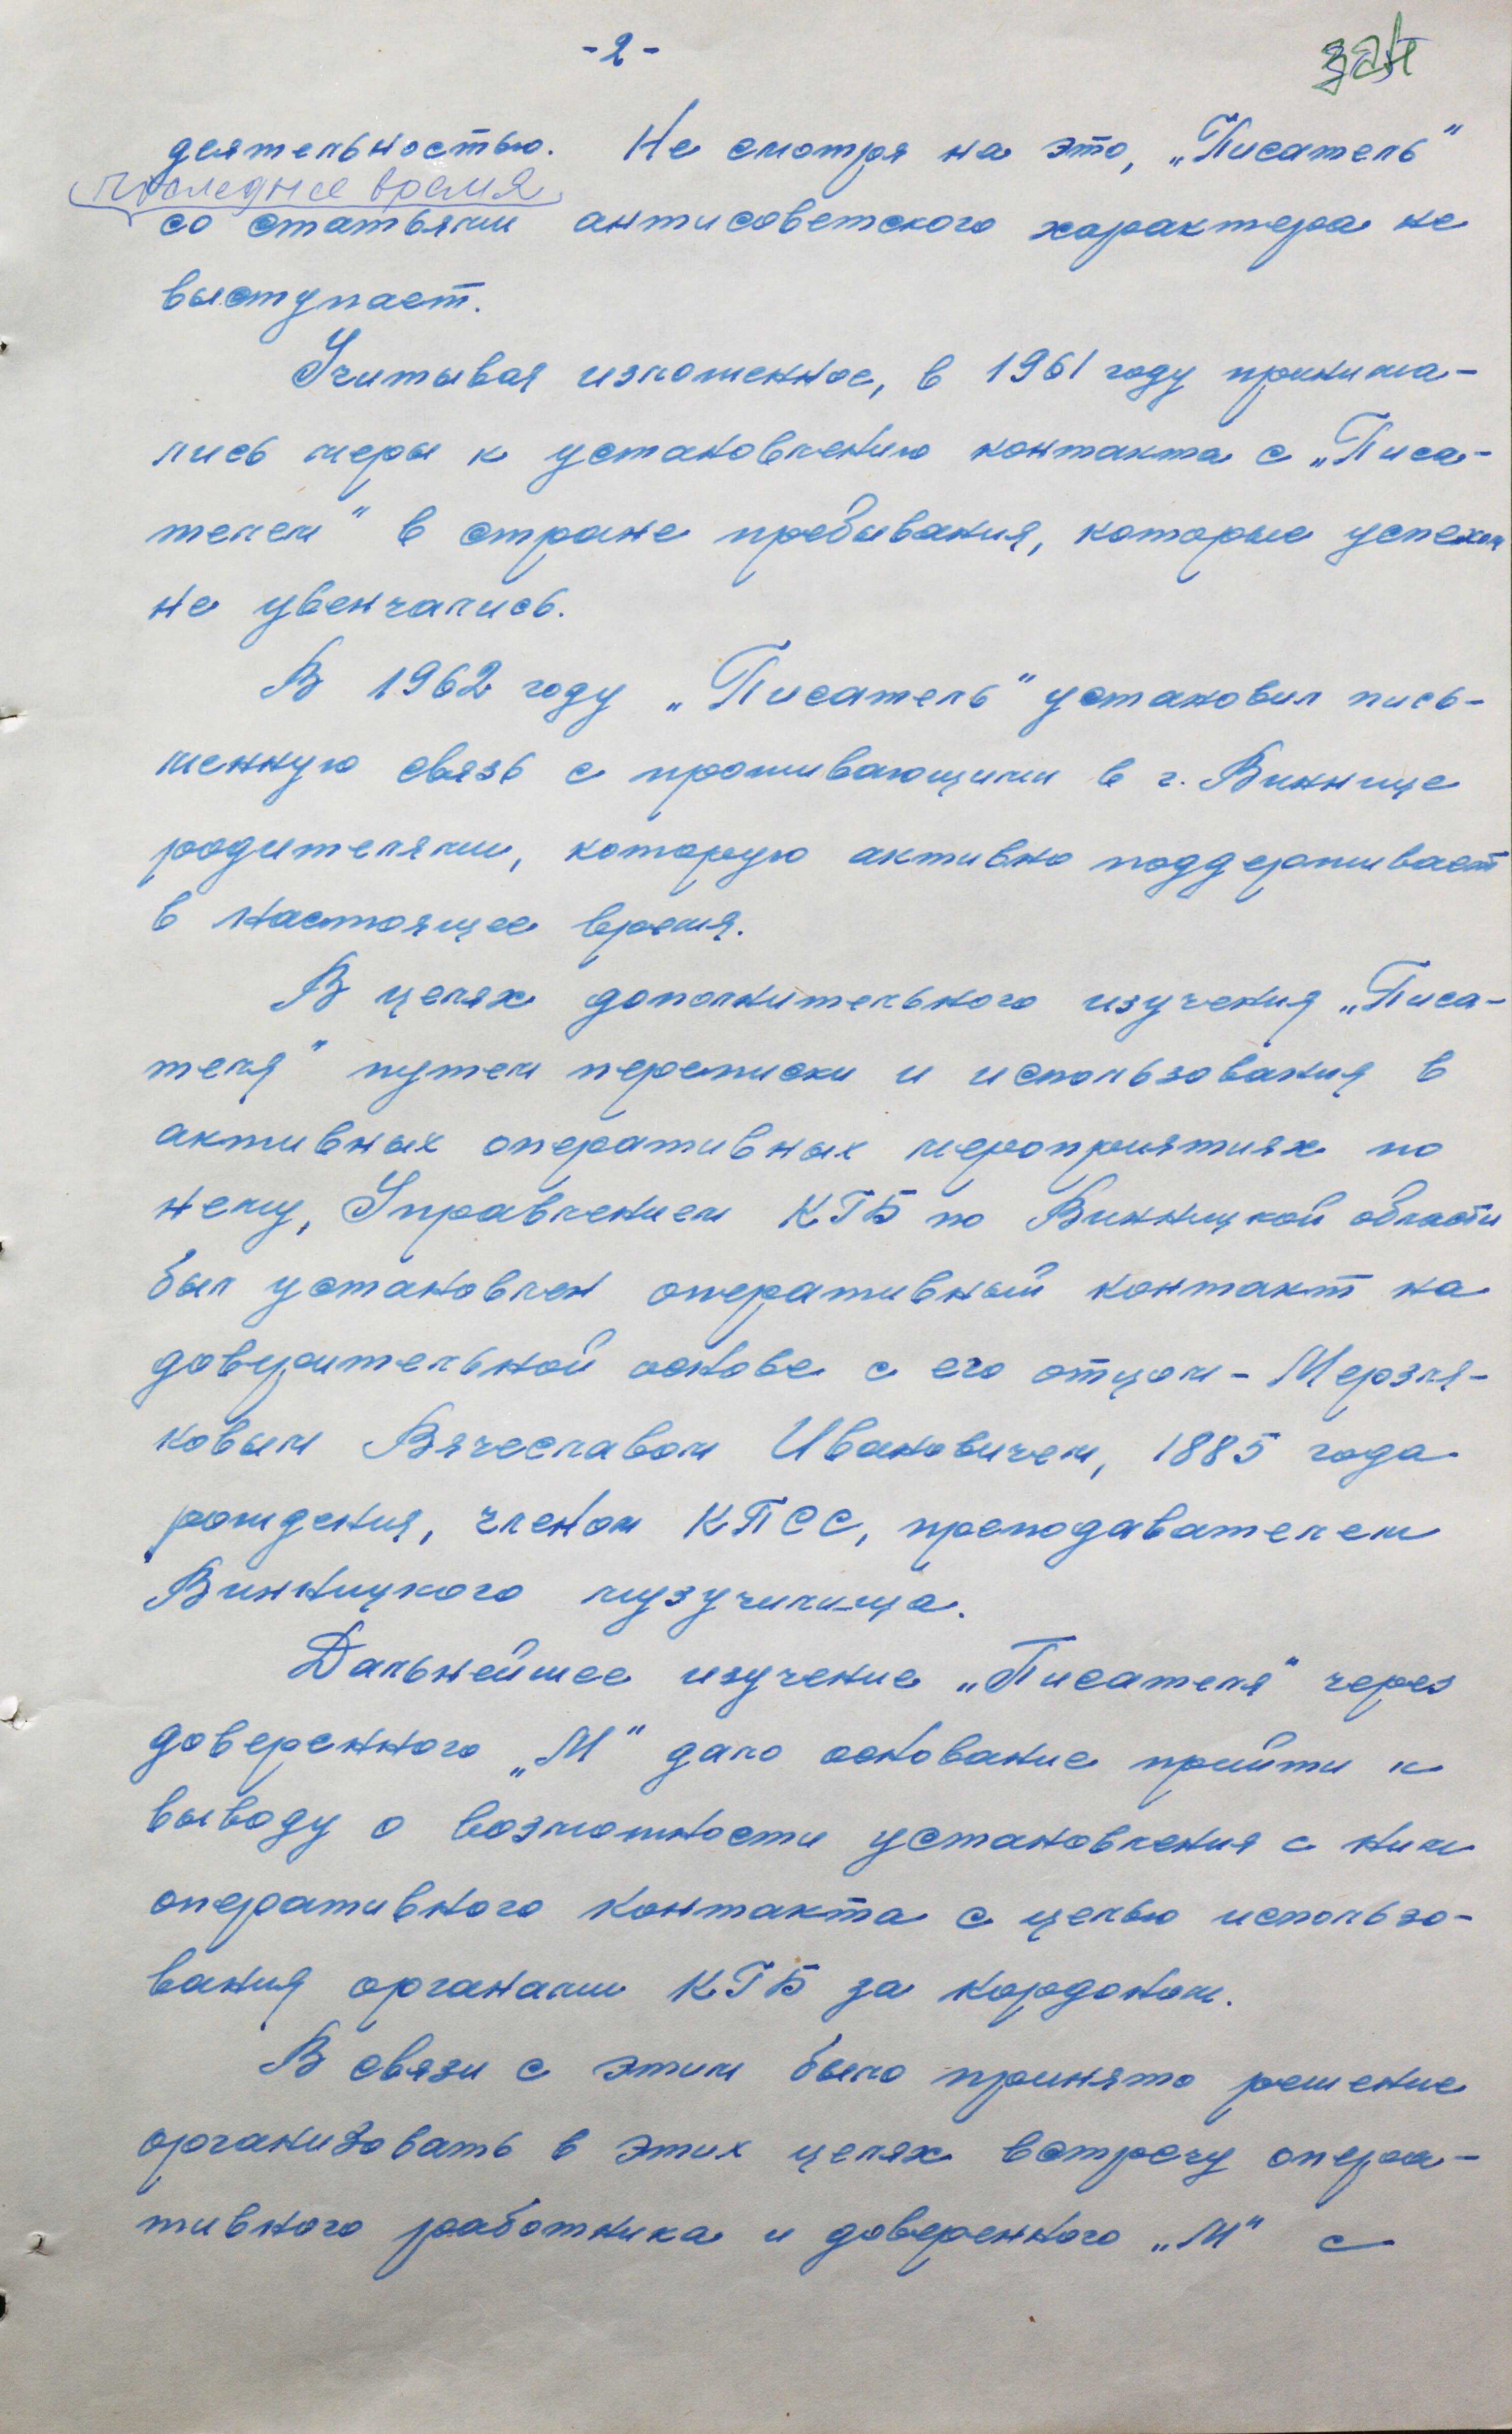 - 2 -
деятельностью. Не смотря на это, „Писатель"
последнее время
со статьями антисоветского характера не
выступает.
Учитывая изложенное, в 1961 году принима-
лись меры к установлению контакта с „Писа-
телем" в стране пребывания, которые успехом
не увенчались.
В 1962 году „Писатель" установил пись-
менную связь с проживающими в г. Виннице
родителями, которую активно поддерживает
в настоящее время.
В целях дополнительного изучения „Писа-
теля" путем переписки и использования в
активных оперативных мероприятиях по
нему, Управлением КГБ по Винницкой области
был установлен оперативный контакт на
доверительной основе с его отцом - Мерзля-
ковым Вячеславом Ивановичем, 1885 года
рождения, членом КПСС, преподавателем
Винницкого музучилища.
Дальнейшее изучение „Писателя" через
доверенного „М" дало основание прийти к
выводу о возможности установления с ним
оперативного контакта с целью использо-
вания органами КГБ за кордоном.
В связи с этим было принято решение
организовать в этих целях встречу опера-
тивного работника и доверенного „М" с